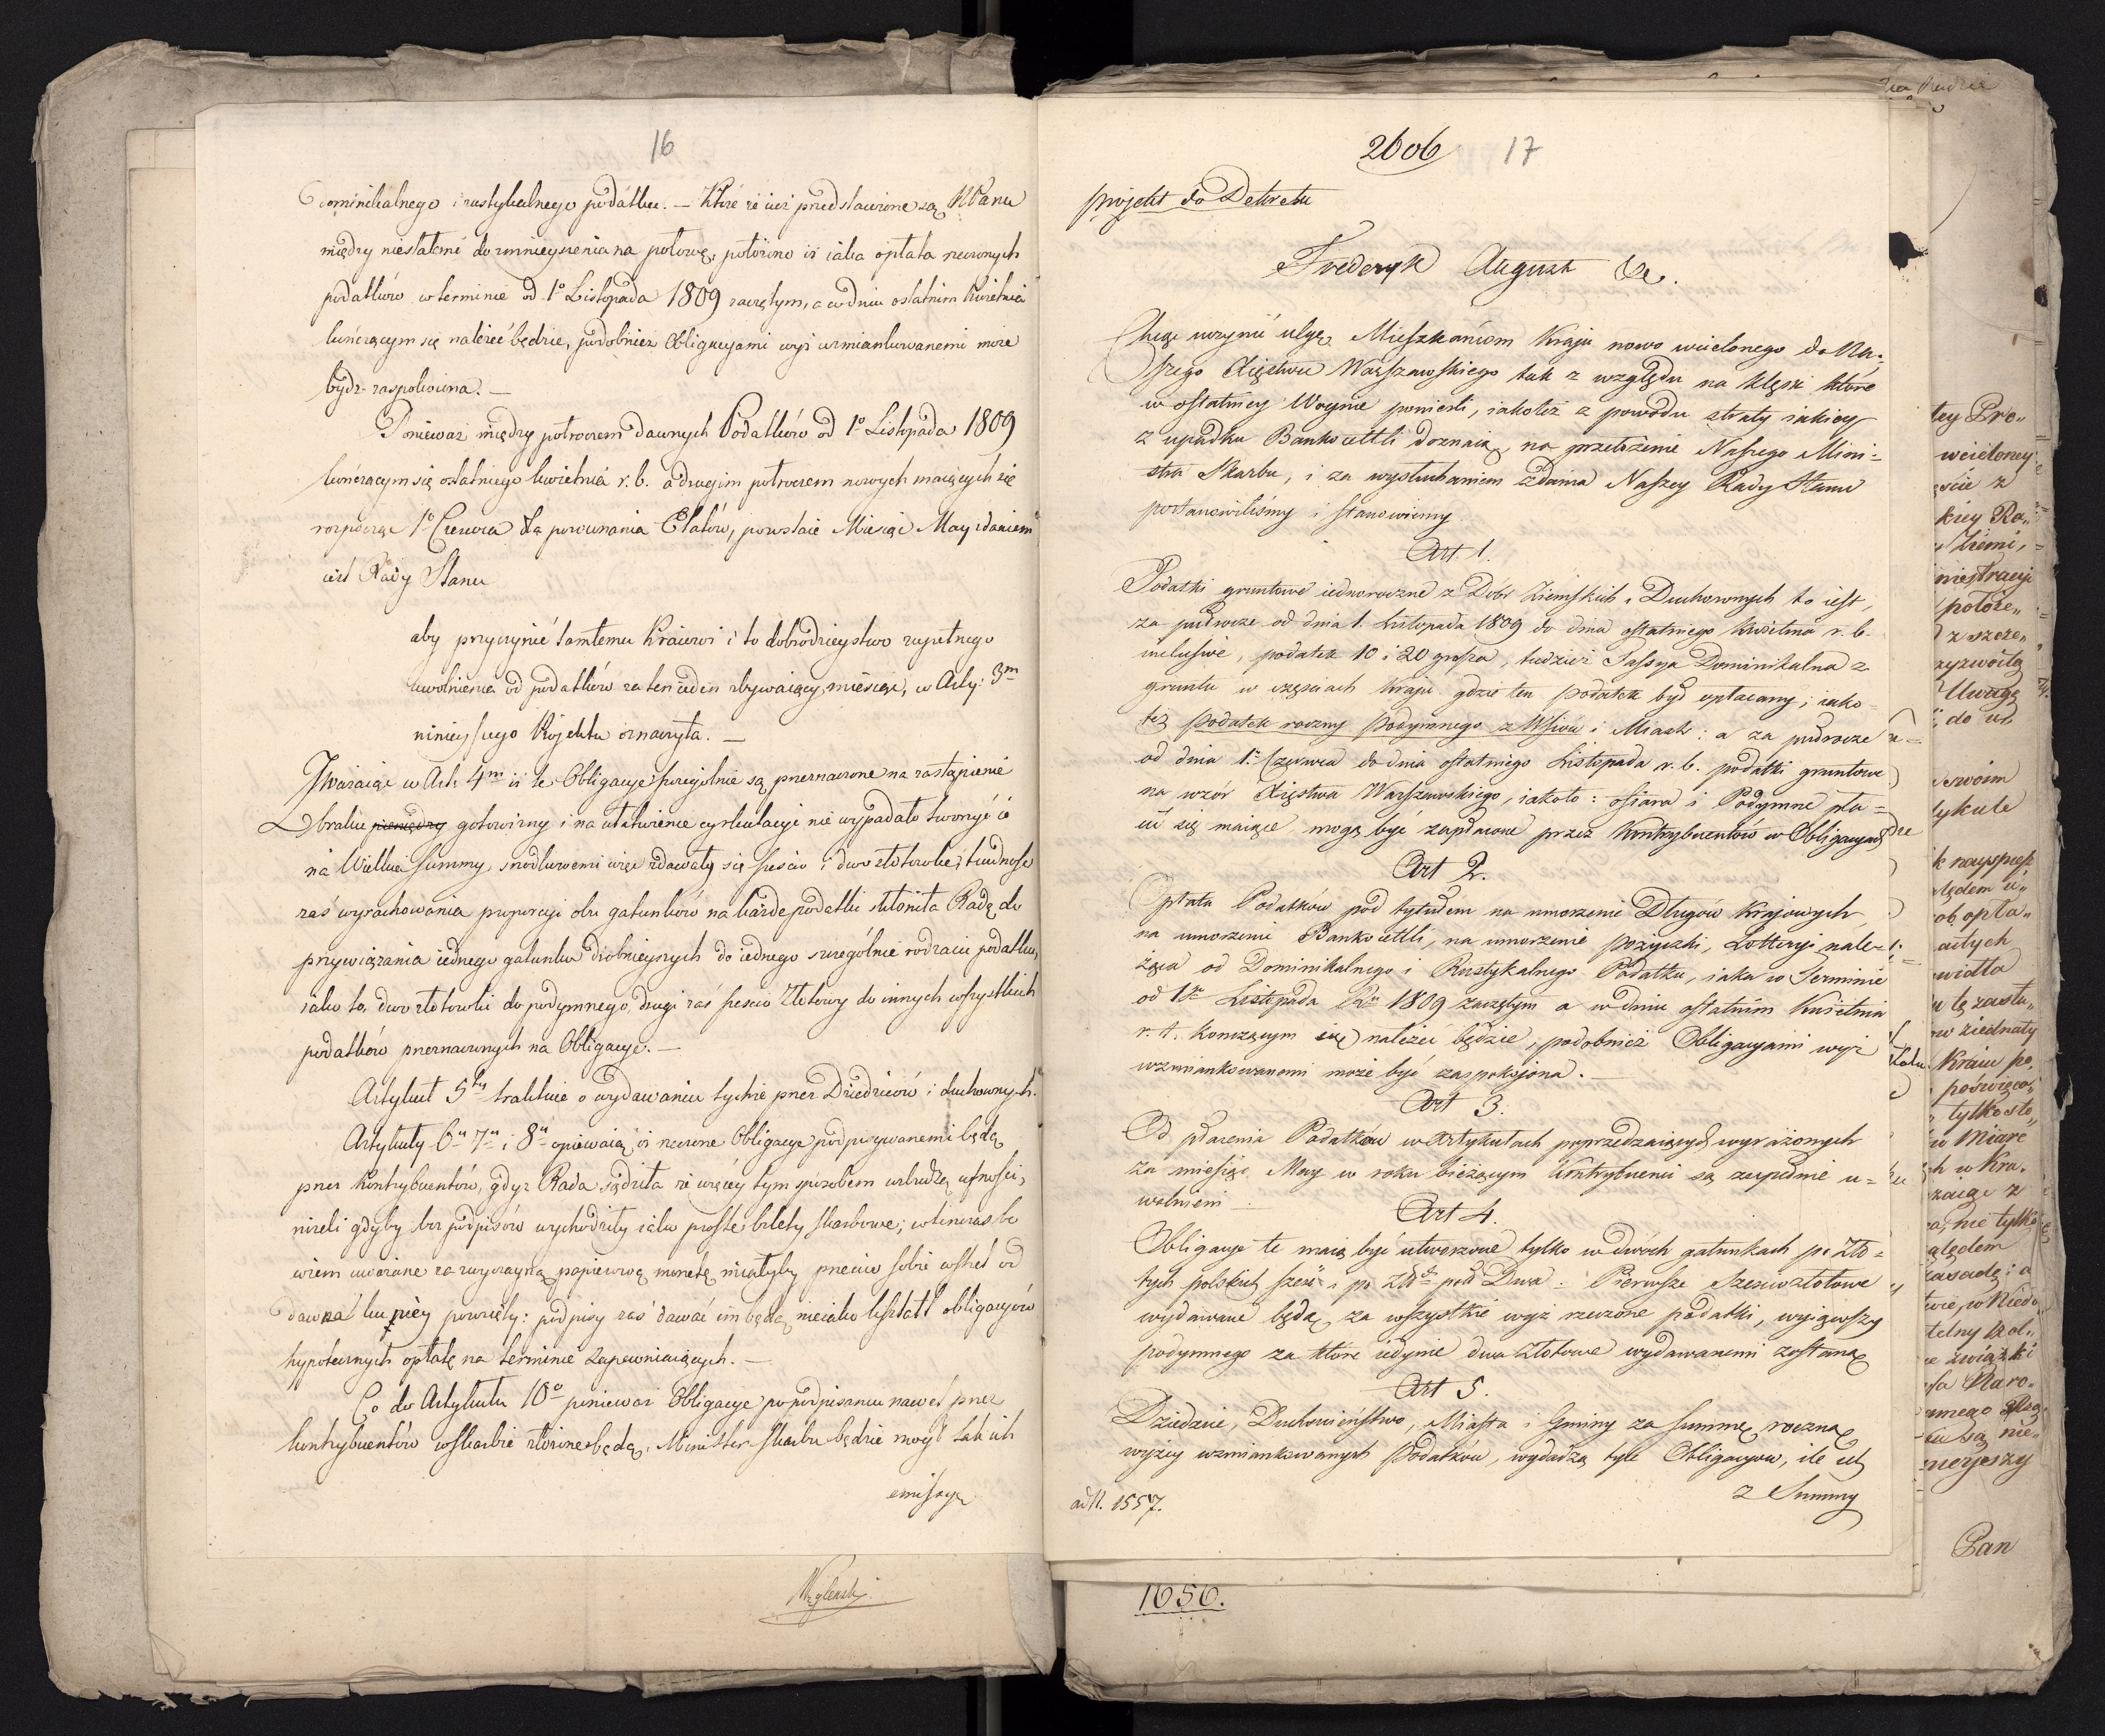 16
Dominikalnego i rustykalnego podatku. — Które że iuż przedstawione są NPanu
między niestałemi do zmnieyszenia na połowę, położono iż iaka opłata rzeczonych
podatków w terminie od 1o Listopada 1809 zaczętym, a w dniu ostatnim Kwietnia
kończącym się należeć będzie, podobnież Obligacyami wyż wzmiankowanemi może
bydz zaspokoiona. —
Ponieważ między półroczem dawnych Podatków od 1o Listopada 1809
kończącym się ostatniego kwietnia r. b. a drugim półroczem nowych maiących się
rozpocząć 1o Czerwca dla porównania Etatów, powstaie Miesiąc May zdaniem
iest Rady Stanu
aby przyczynić tamtemu Kraiowi i to dobrodzieystwo zupełnego
uwolnienia od podatków za ten ieden zbywaiący miesiąc, w Arty: 3m
ninieyszego Projektu oznaczyła. —
Zważaiąc w Art: 4m iż te Obligacye szczególnie są przeznaczone na zastąpienie
braku pieniędzy gotowizny i na ułatwienie cyrkulacyi nie wypadało tworzyć ie
na Wielkie Summy, środkowemi więc zdawały się sześcio i dwu złotowki, trudność
zaś wyrachowania proporcyi obu gatunków na każde podatki skłoniła Radę do
przywiązania iednego gatunku drobnieyszych do iednego szczególnie rodzaiu podatku,
iako to, dwu złotowki do podymnego, drugi zaś sześcio Złotowy do innych wszystkich
podatków przeznaczonych na Obligacye. —
Artykuł 5ty traktuie o wydawaniu tychże przez Dziedziców i duchownych.
Artykuły 6y 7y i 8y opiewaią iż rzeczone Obligacye podpisywanemi będą
przez Kontrybuentów, gdyż Rada sądziła że więcey tym sposobem wzbudzą ufności,
niżeli gdyby bez podpisów wychodziły iako proste bilety skarbowe; wtenczas bo
wiem uważane za zwyczayną papierową monetę miałyby przeciw sobie wstręt od
dawna ku niey powzięty: podpisy zaś dawać im będą nieiako kształt obligacyów
hypotecznych opłatę na terminie zapewniaiących. —
Co do Artykułu 10o ponieważ Obligacye po podpisaniu nawet przez
kontrybuentów w Skarbie złożone będą, Minister Skarbu będzie mógł tak ich
emissyą
2606 17
projekt do Dekretu
Frederyk August &c.
Chcąc uczynić ulgę Mieszkańcom Kraju nowo wcielonego do Na:
szego Xięstwa Warszawskiego tak z względu na klęski które
w ostatniey Woynie ponieśli, iakoteż z powodu straty iakiey
z upadku Bankocettli doznaią, na przełożenie Naszego Mini:
stra Skarbu, i za wysłuchaniem zdania Naszey Rady Stanu
postanowiliśmy i stanowiemy
Art. 1.
Podatki gruntowe iednoroczne z Dóbr Ziemskich i Duchownych to iest,
za pułrocze od dnia 1. Listopada 1809 do dnia ostatniego Kwietnia r. b.
inclusive, podatek 10 i 20 grosza, tudzież Fassya Dominikalna z
gruntu w częściach Kraju gdzie ten podatek był opłacany; iako
też podatek roczny podymnego z Wsiów i Miast: a za pułrocze
od dnia 1. Czerwca do dnia ostatniego Listopada r. b. podatki gruntowe
na wzór Xięstwa Warszawskiego, iakoto: ofiara i Podymne pła=
cić się maiące, mogą być zapłacone przez Kontrybuentów w Obligacyach
Art 2.
Opłata Podatków pod tytułem na umorzenie Długów Krajowych
na umorzenie Bankocettli, na umorzenie pożyczki, Lotteryi nale=
żąca od Dominikalnego i Rustykalnego Podatku, iaka w Terminie
od 1go Listopada Rku 1809 zaczętym a w dniu ostatnim Kwietnia
r. t. kończącym się należeć będzie, podobnież Obligacyami wyż
wzmiankowanemi może być zaspokojona. —
Art 3.
Od płacenia Podatków w Artykułach poprzedzaiących wyrażonych
za miesiąc May w roku bieżącym Kontrybuenci są zupełnie u=
wolnieni —
Art 4.
Obligacye te maią być utworzone tylko w dwóch gatunkach po Zło=
tych polskich sześć i po Złłch pol: Dwa. Pierwsze sześciozłotowe
wydawane będą za wszystkie wyż rzeczone podatki, wyiąwszy
podymnego za które iedynie dwa Złotowe wydawanemi zostaną
Art 5.
Dziedzice, Duchowieństwo, Miasta i Gminy za summę roczną
wyżey wzmiankowanych Podatków, wydadzą tyle Obligacyow, ile ich
z Summy
ad N. 1557.
1656.
tey Pro„
wcieloney
kiey Ra„
Ziemi,
położe„
z szcze„
Uwagę
do ul
swoim
tykule
opła„
światła
ziednały
Kraiu po„
poświęco„
tylko sto„
w Miarę
w Kra„
nie tylko
względem
zasadę: a
związki
Naro„
są nie„
Pan